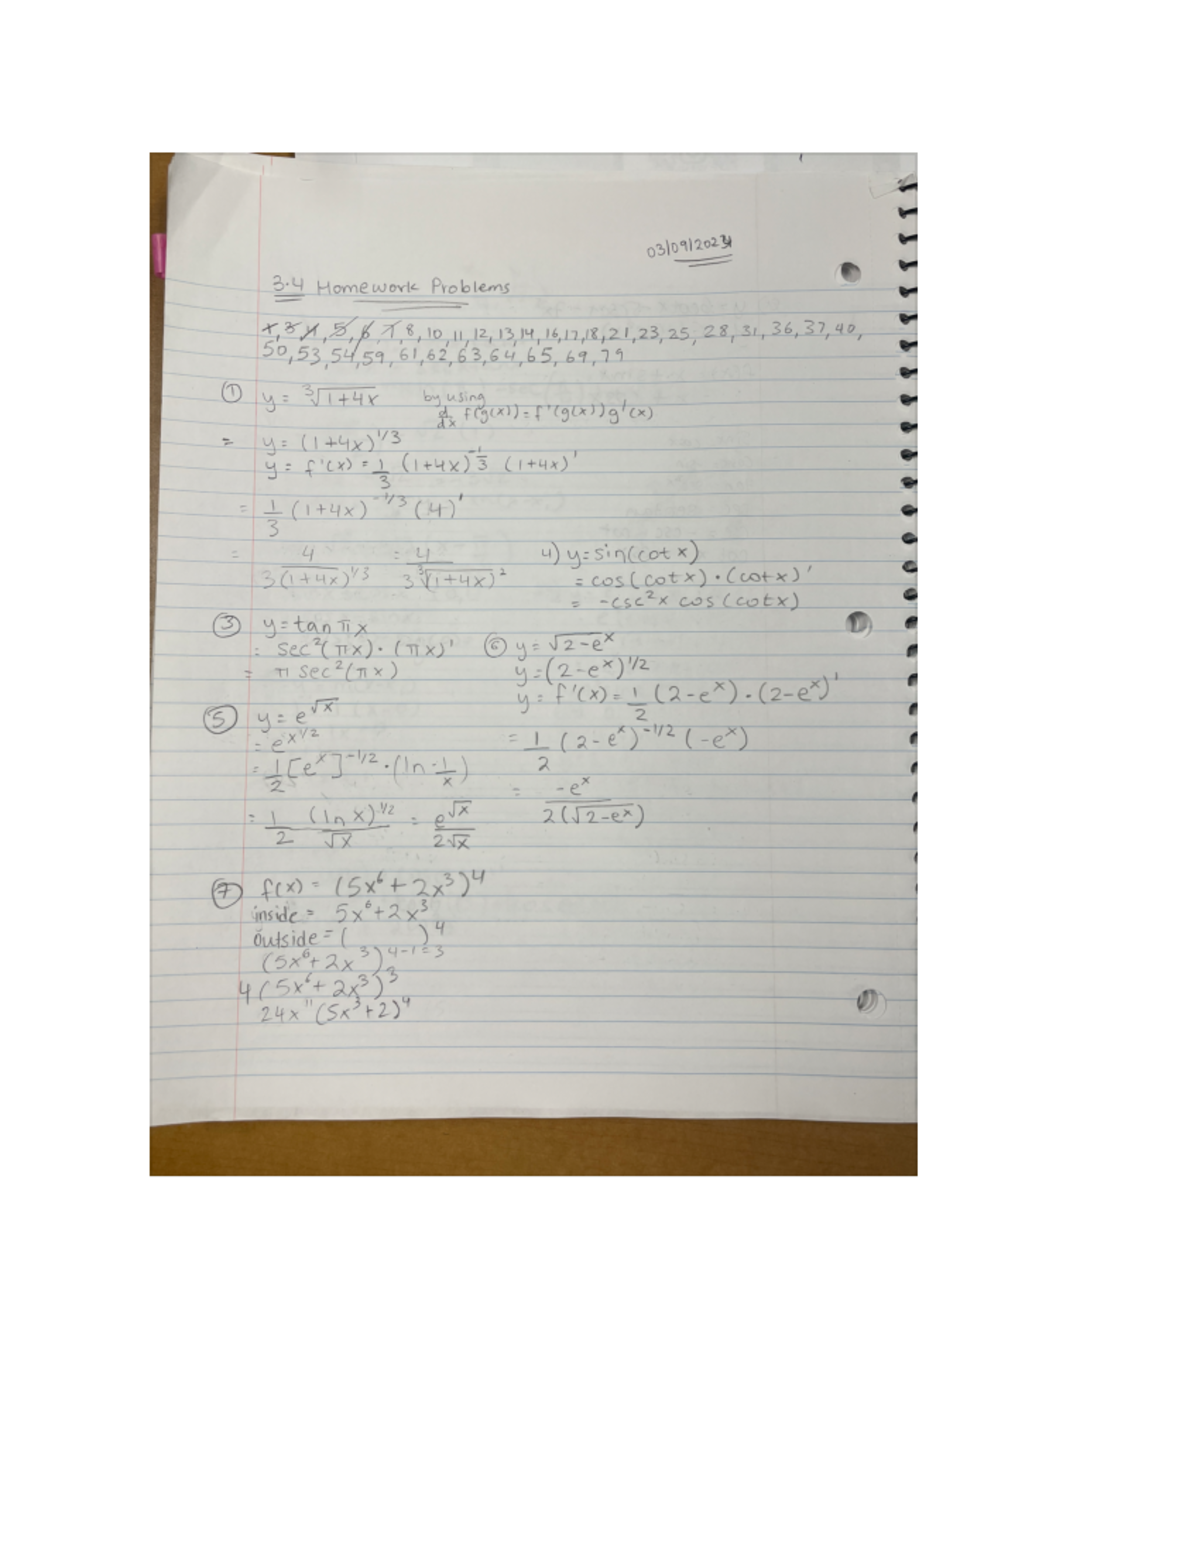 03/09/2023
3.4 Homework Problems
1, 3, 4, 5, 6, 7, 8, 10, 11, 12, 13, 14, 16, 17, 18, 21, 23, 25, 28, 31, 36, 37, 40,
50, 53, 54, 59, 61, 62, 63, 64, 65, 69, 79
① y = ∛(1+4x) by using
d/dx f(g(x)) = f'(g(x)) g'(x)
= y = (1+4x)^1/3
y = f'(x) = 1/3 (1+4x)^-1/3 (1+4x)'
= 1/3 (1+4x)^-1/3 (4)'
= 4/3(1+4x)^1/3 = 4/3∛(1+4x)^2
4) y = sin(cot x)
= cos(cot x) · (cot x)'
= -csc²x cos(cotx)
③ y = tan πx
= sec²(πx) · (πx)'
= π sec²(πx)
⑥ y = √2-e^x
y = (2-e^x)^1/2
y = f'(x) = 1/2 (2-e^x) · (2-e^x)'
= 1/2 (2-e^x)^-1/2 (-e^x)
= -e^x/2(√2-e^x)
⑤ y = e^√x
= e^x^1/2
= 1/2 [e^x]^-1/2 · (ln · 1/x)
= 1/2 (ln x)^1/2/√x = e^√x/2√x
⑦ f(x) = (5x^6 + 2x^3)^4
inside = 5x^6 + 2x^3
outside = ( )^4
(5x^6 + 2x^3)^4-1=3
4(5x^6 + 2x^3)^3
24x^11 (5x^3 + 2)^4